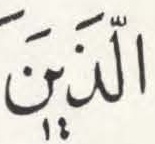 الّذَينَ
١٤